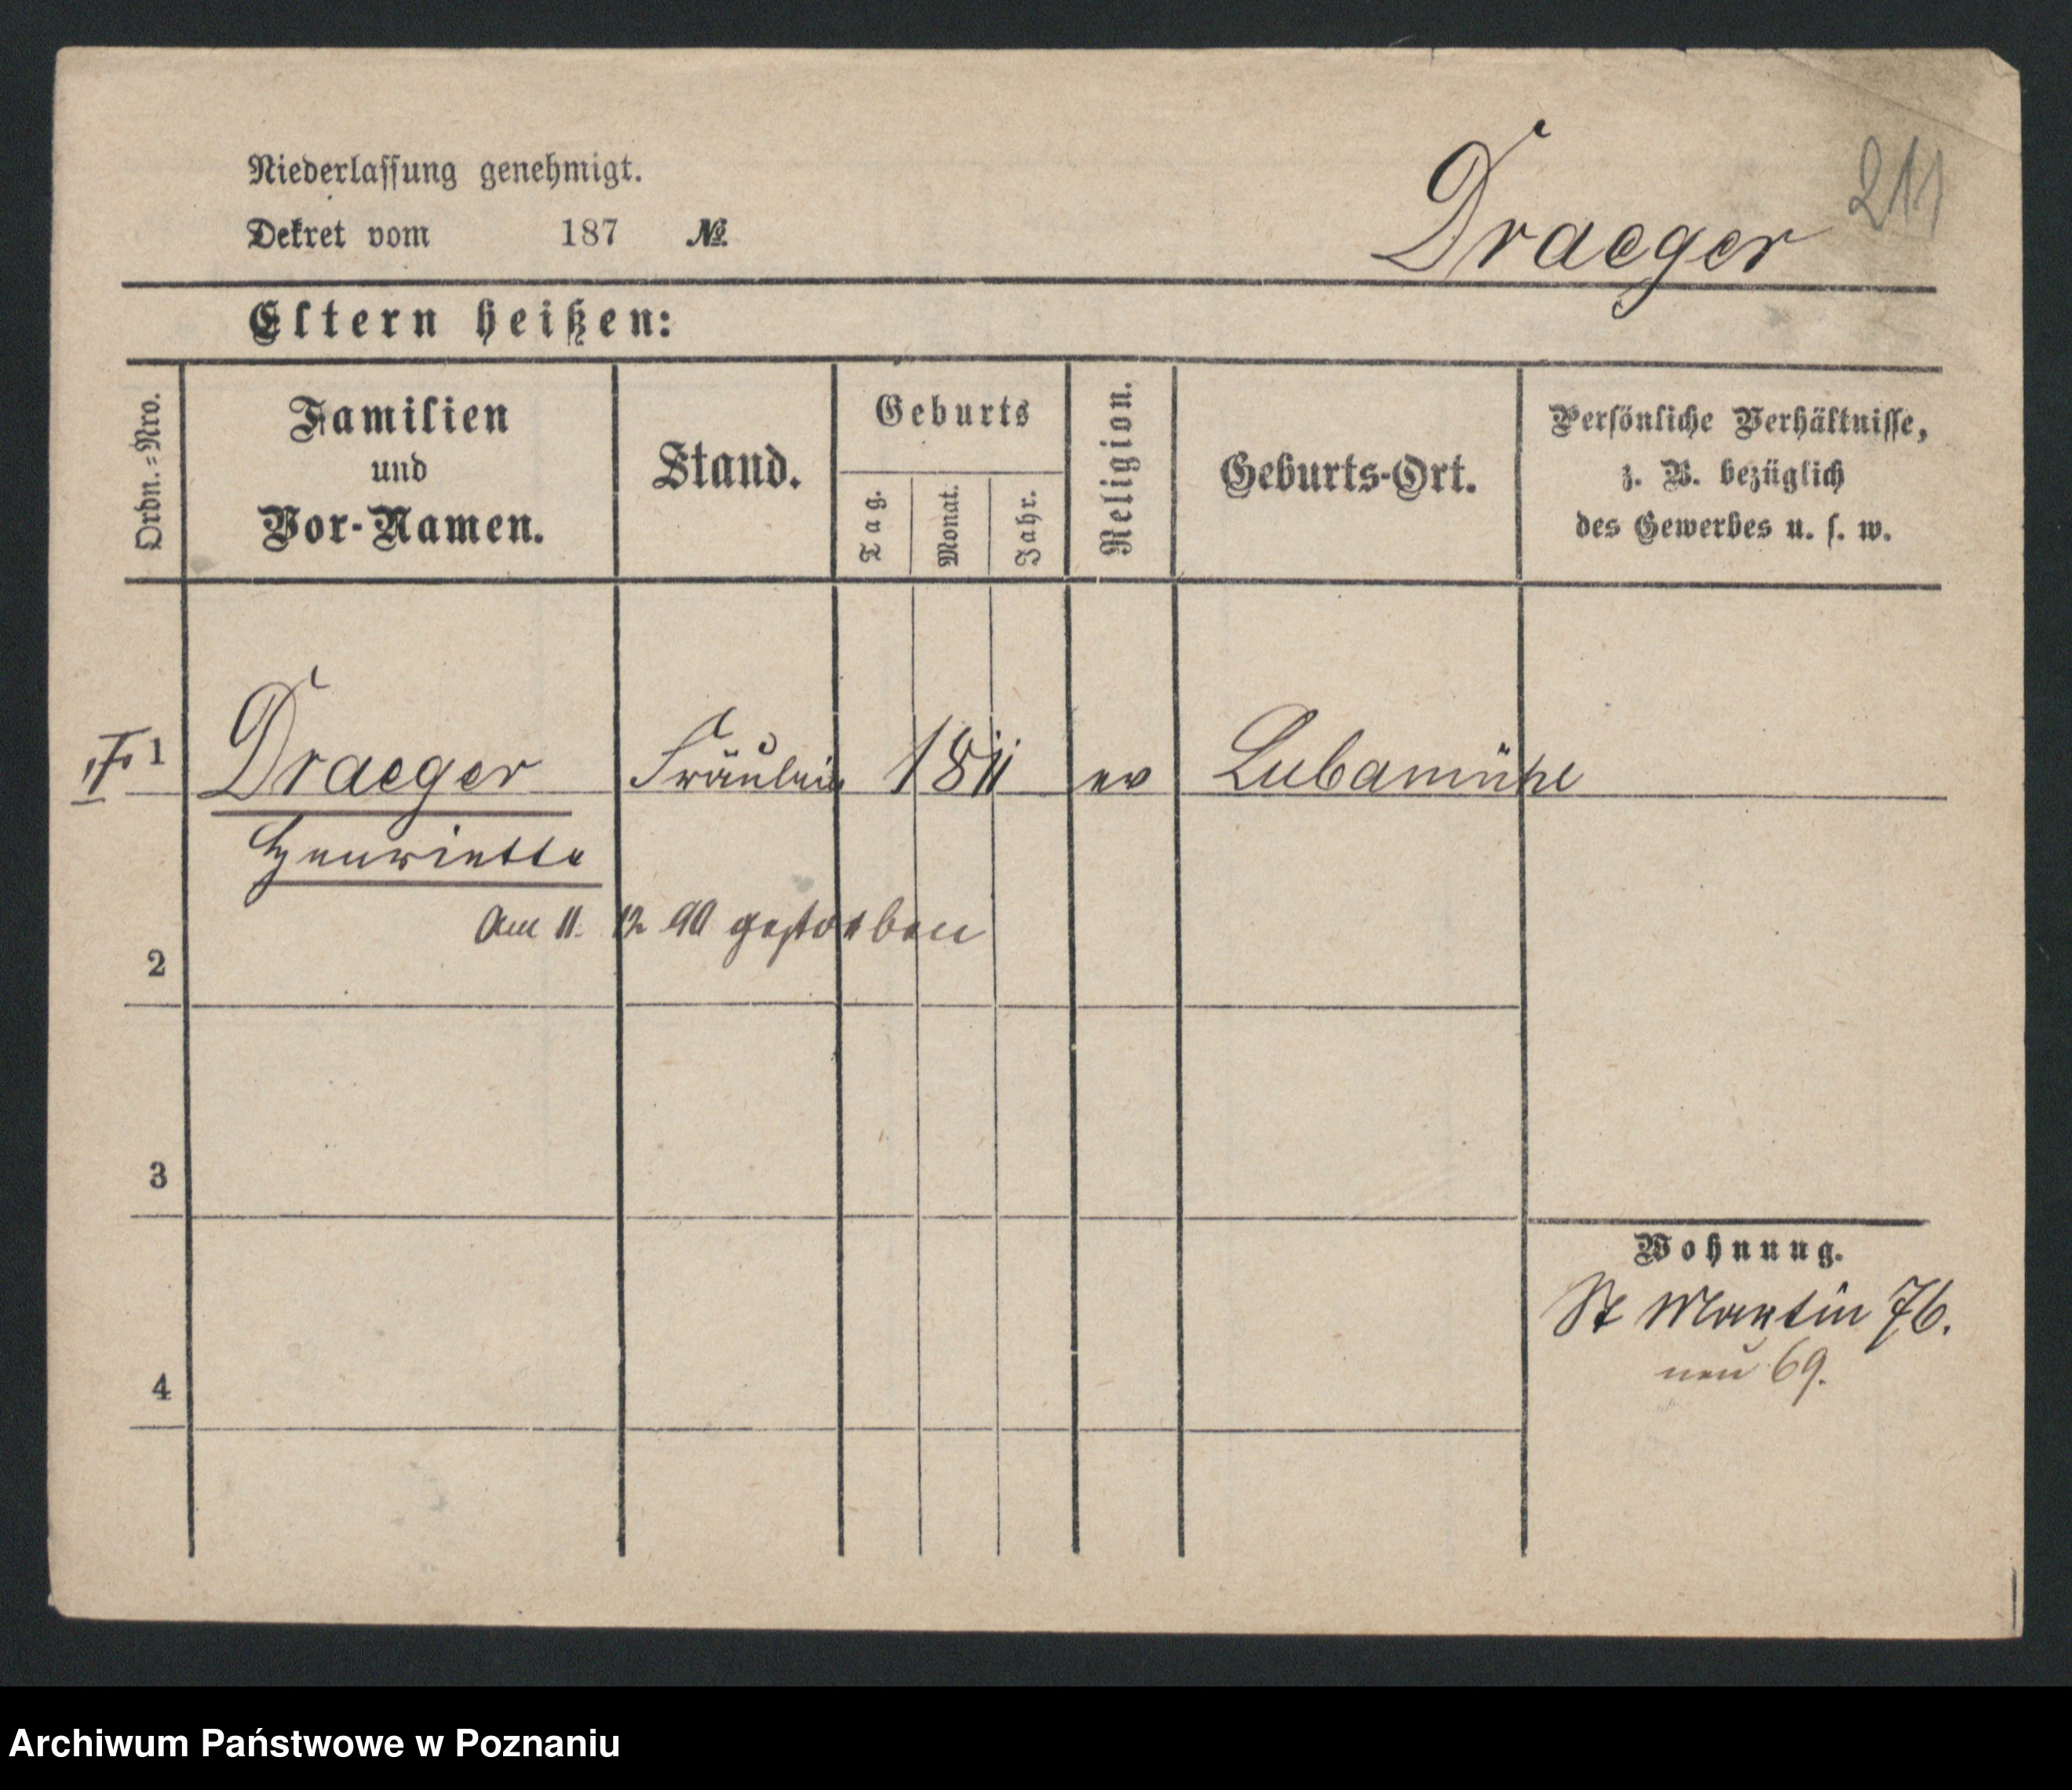 Niederlassung genehmigt.
Dekret vom 187 №
Draeger
211
Eltern heißen:
Ordn.-Nro.
Familien
und
Vor-Namen.
Stand.
Geburts
Tag.
Monat.
Jahr.
Religion.
Geburts-Ort.
Persönliche Verhältnisse,
z. B. bezüglich
des Gewerbes u. s. w.
1 Draeger Fräulein 1811 ev Lubamühe
Henriette
Am 11. 12 90 gestorben
2
3
Wohnung.
St Martin 76.
neu 69.
4
Archiwum Państwowe w Poznaniu